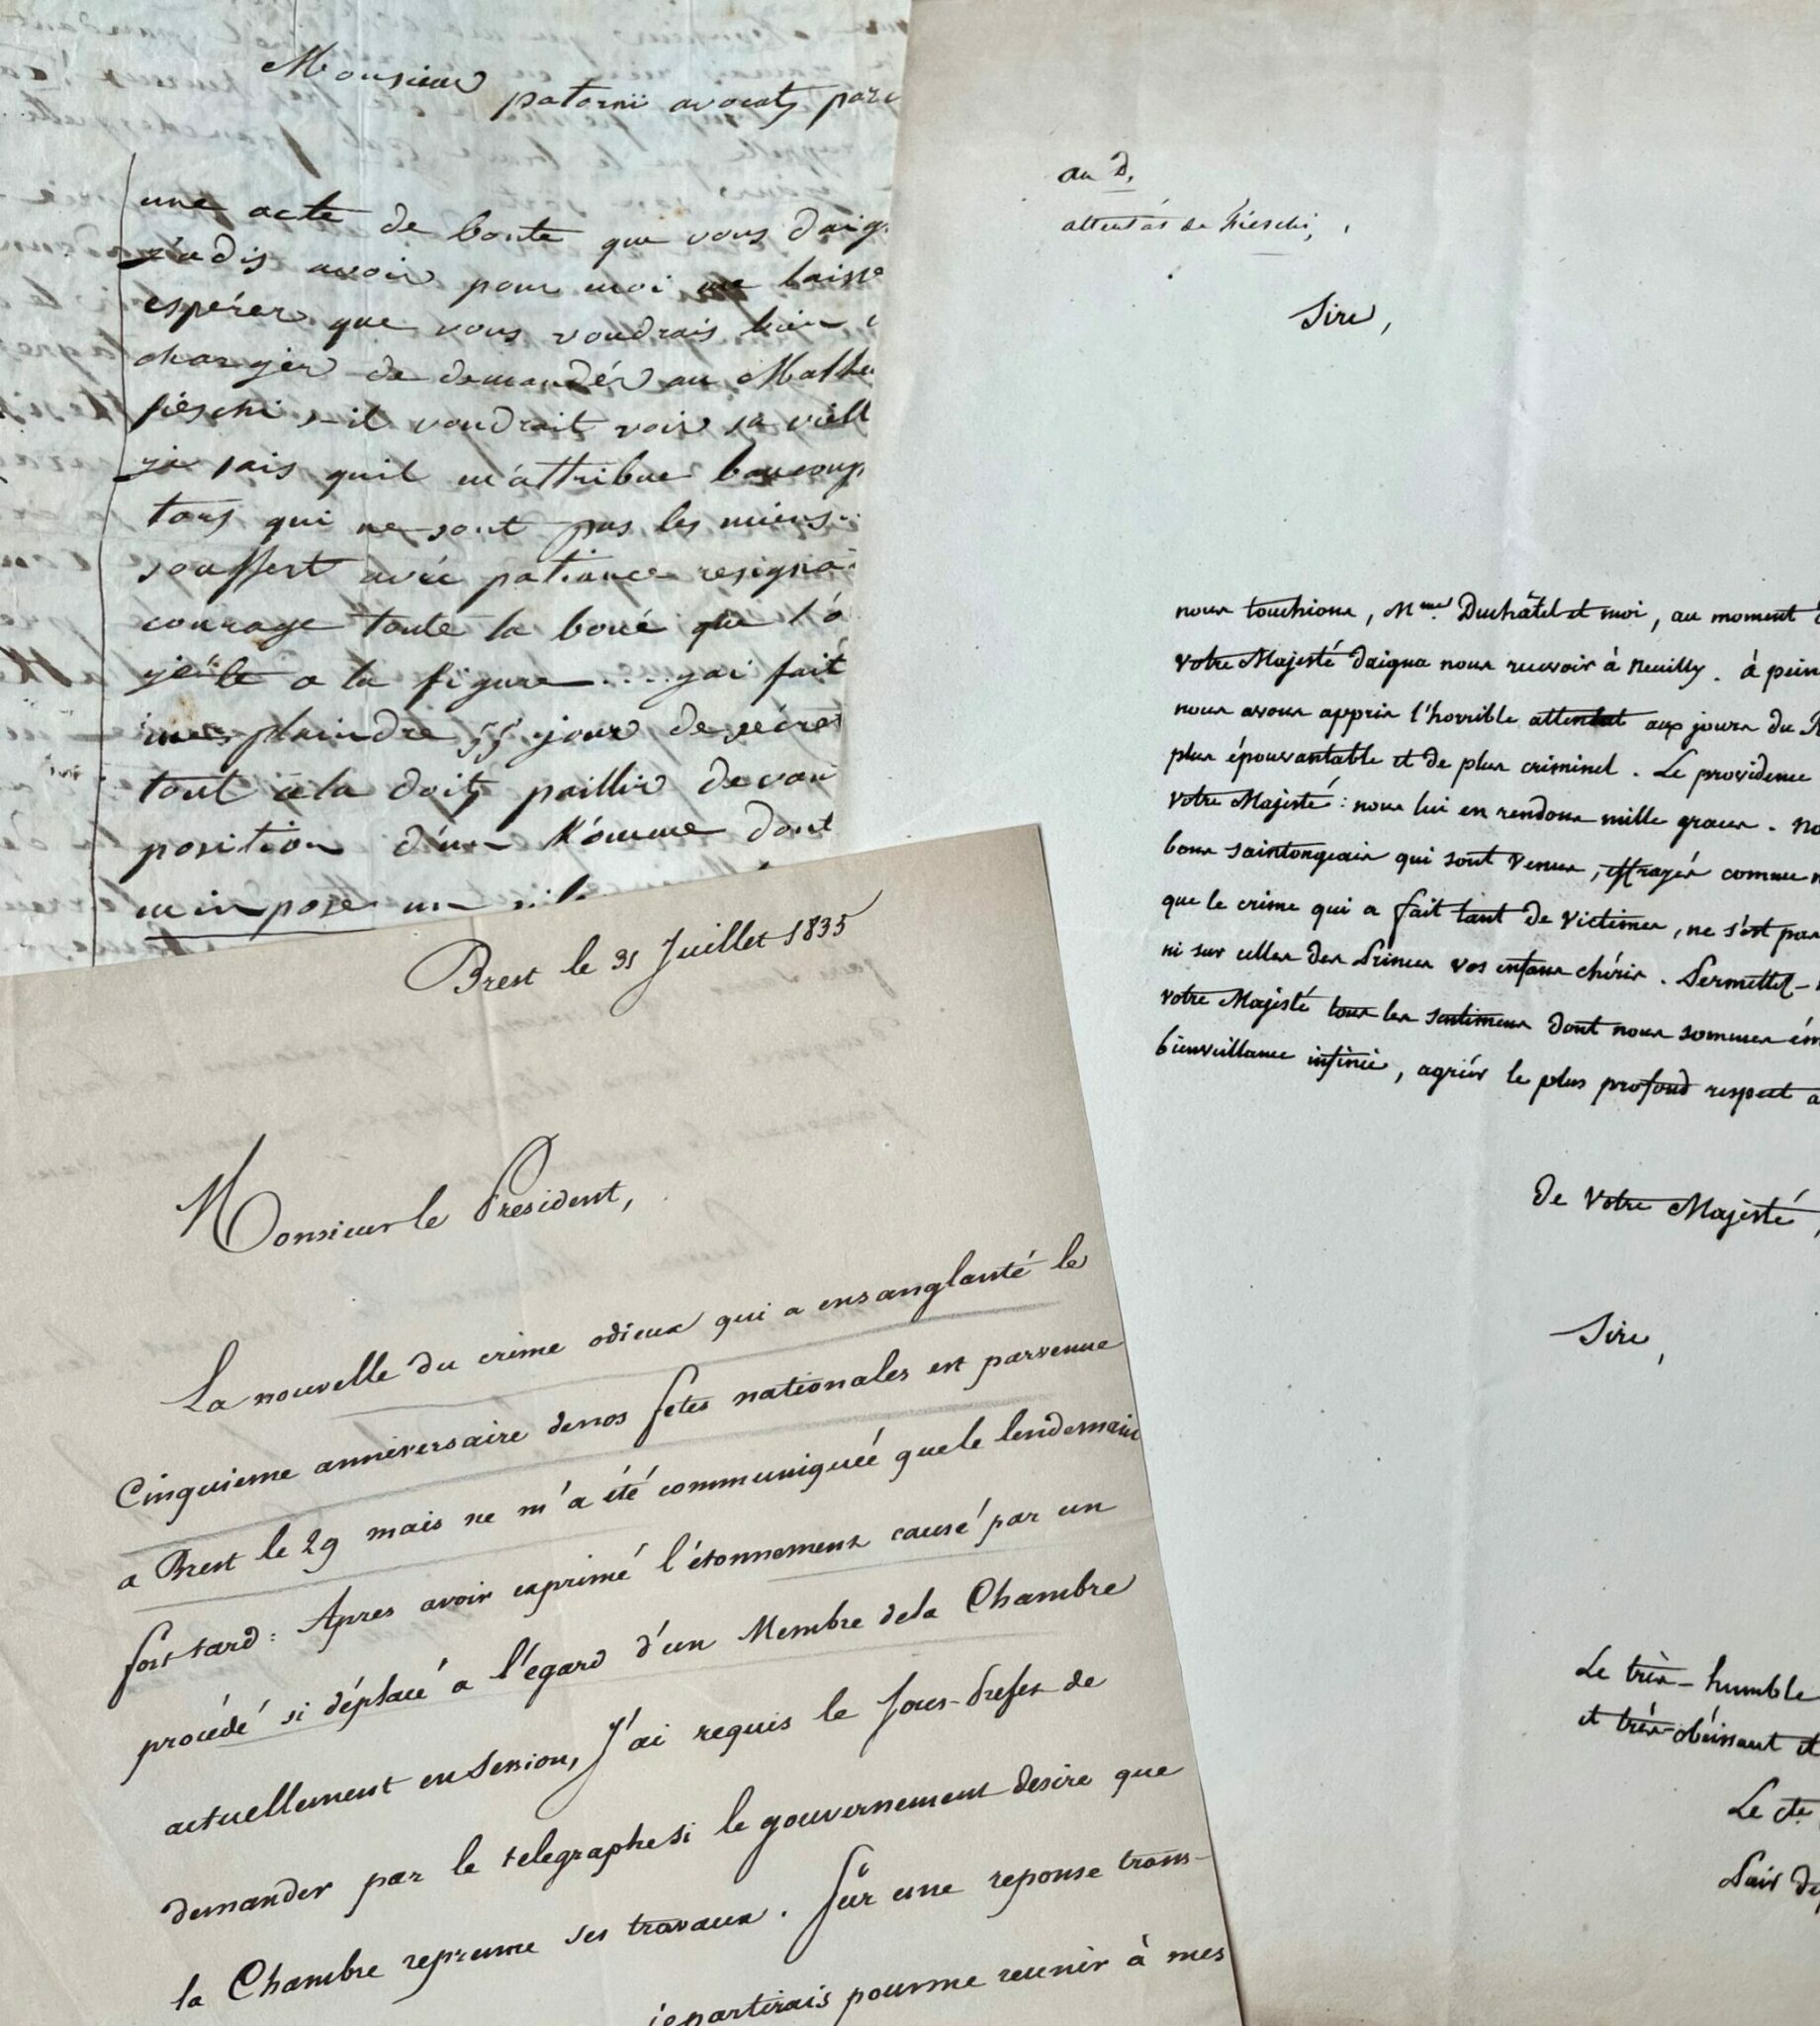 Monsieur
patornii avocat, pari
une acte de bonte que vous daig
j'adis avoir pour moi me laisse
espérer que vous voudrais bien
charger de demandér au Malheu
fiéschi s-il voudrait voir sa viell
je sais quil m'attribue baucoup
tors qui ne sont pas les miens..
souffert avéc patiance resigna
courage toute la boué que l'o
jéte a la figure.... jai fait
plaindre 55 jour de sécret
tout céla doit paillir devan
position d'un Homme dont
m'inpose un
au D,
attentat de Fieschi,
Sire,
nous touchions, Mme. Duchâtel et moi, au moment
votre Majesté daigna nous recevoir à Neuilly. à pein
nous avons appris l'horrible attentat aux jours du R
plus épouvantable et de plus criminel. Le providence
votre Majesté : nous lui en rendons mille graces. no
bons saintongeais qui sont venus, effrayés comme n
que le crime qui a fait tant de victimes, ne s'est pas
ni sur celles des Princes vos enfans chéris. Permettez-
votre Majesté tous les sentimens dont nous sommes ém
bienveillance infinie, agréer le plus profond respect a
De votre Majesté,
Sire,
Le très-humble
et très-obéissant et
Le cte.
Pair de
Brest le 31 Juillet 1835
Monsieur le President,
La nouvelle du crime odieux qui a ensanglanté le
Cinquieme anniversaire de nos fetes nationales est parvenue
a Brest le 29 mais ne m'a été communiquée que le lendemain
fort tard : Apres avoir exprimé l'étonnement causé par un
procédé si déplacé a l'egard d'un Membre de la Chambre
actuellement en Session, J'ai requis le Sous-Prefet de
demander par le telegraphe si le gouvernement desire que
la Chambre reprenne ses travaux. Sur une reponse trans-
je partirais pour me reunir à mes